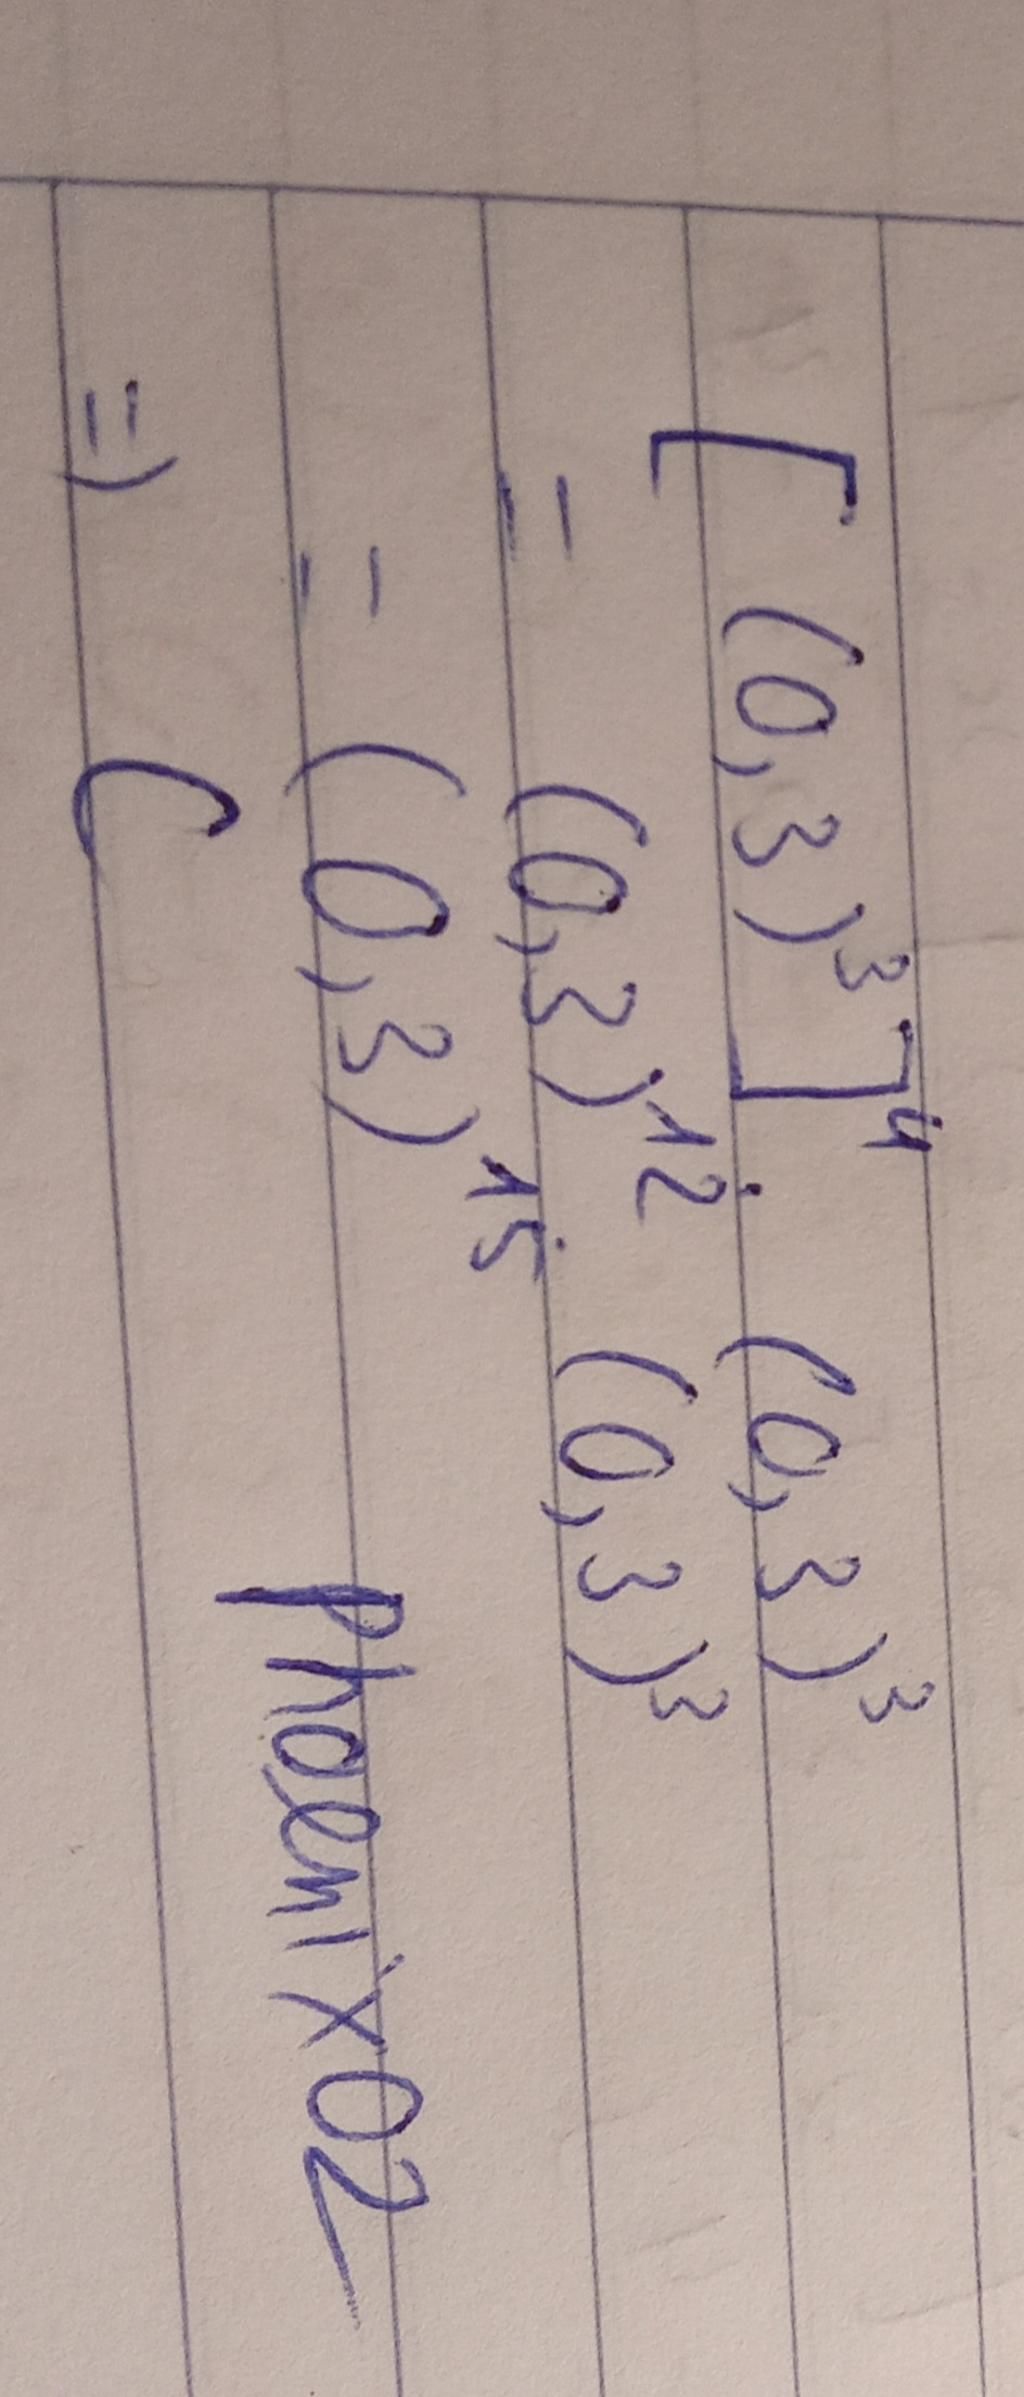 [(0,3)³]⁴ . (0,3)³
= (0,3)¹² . (0,3)³
= (0,3)¹⁵
=) C
Phoenix02